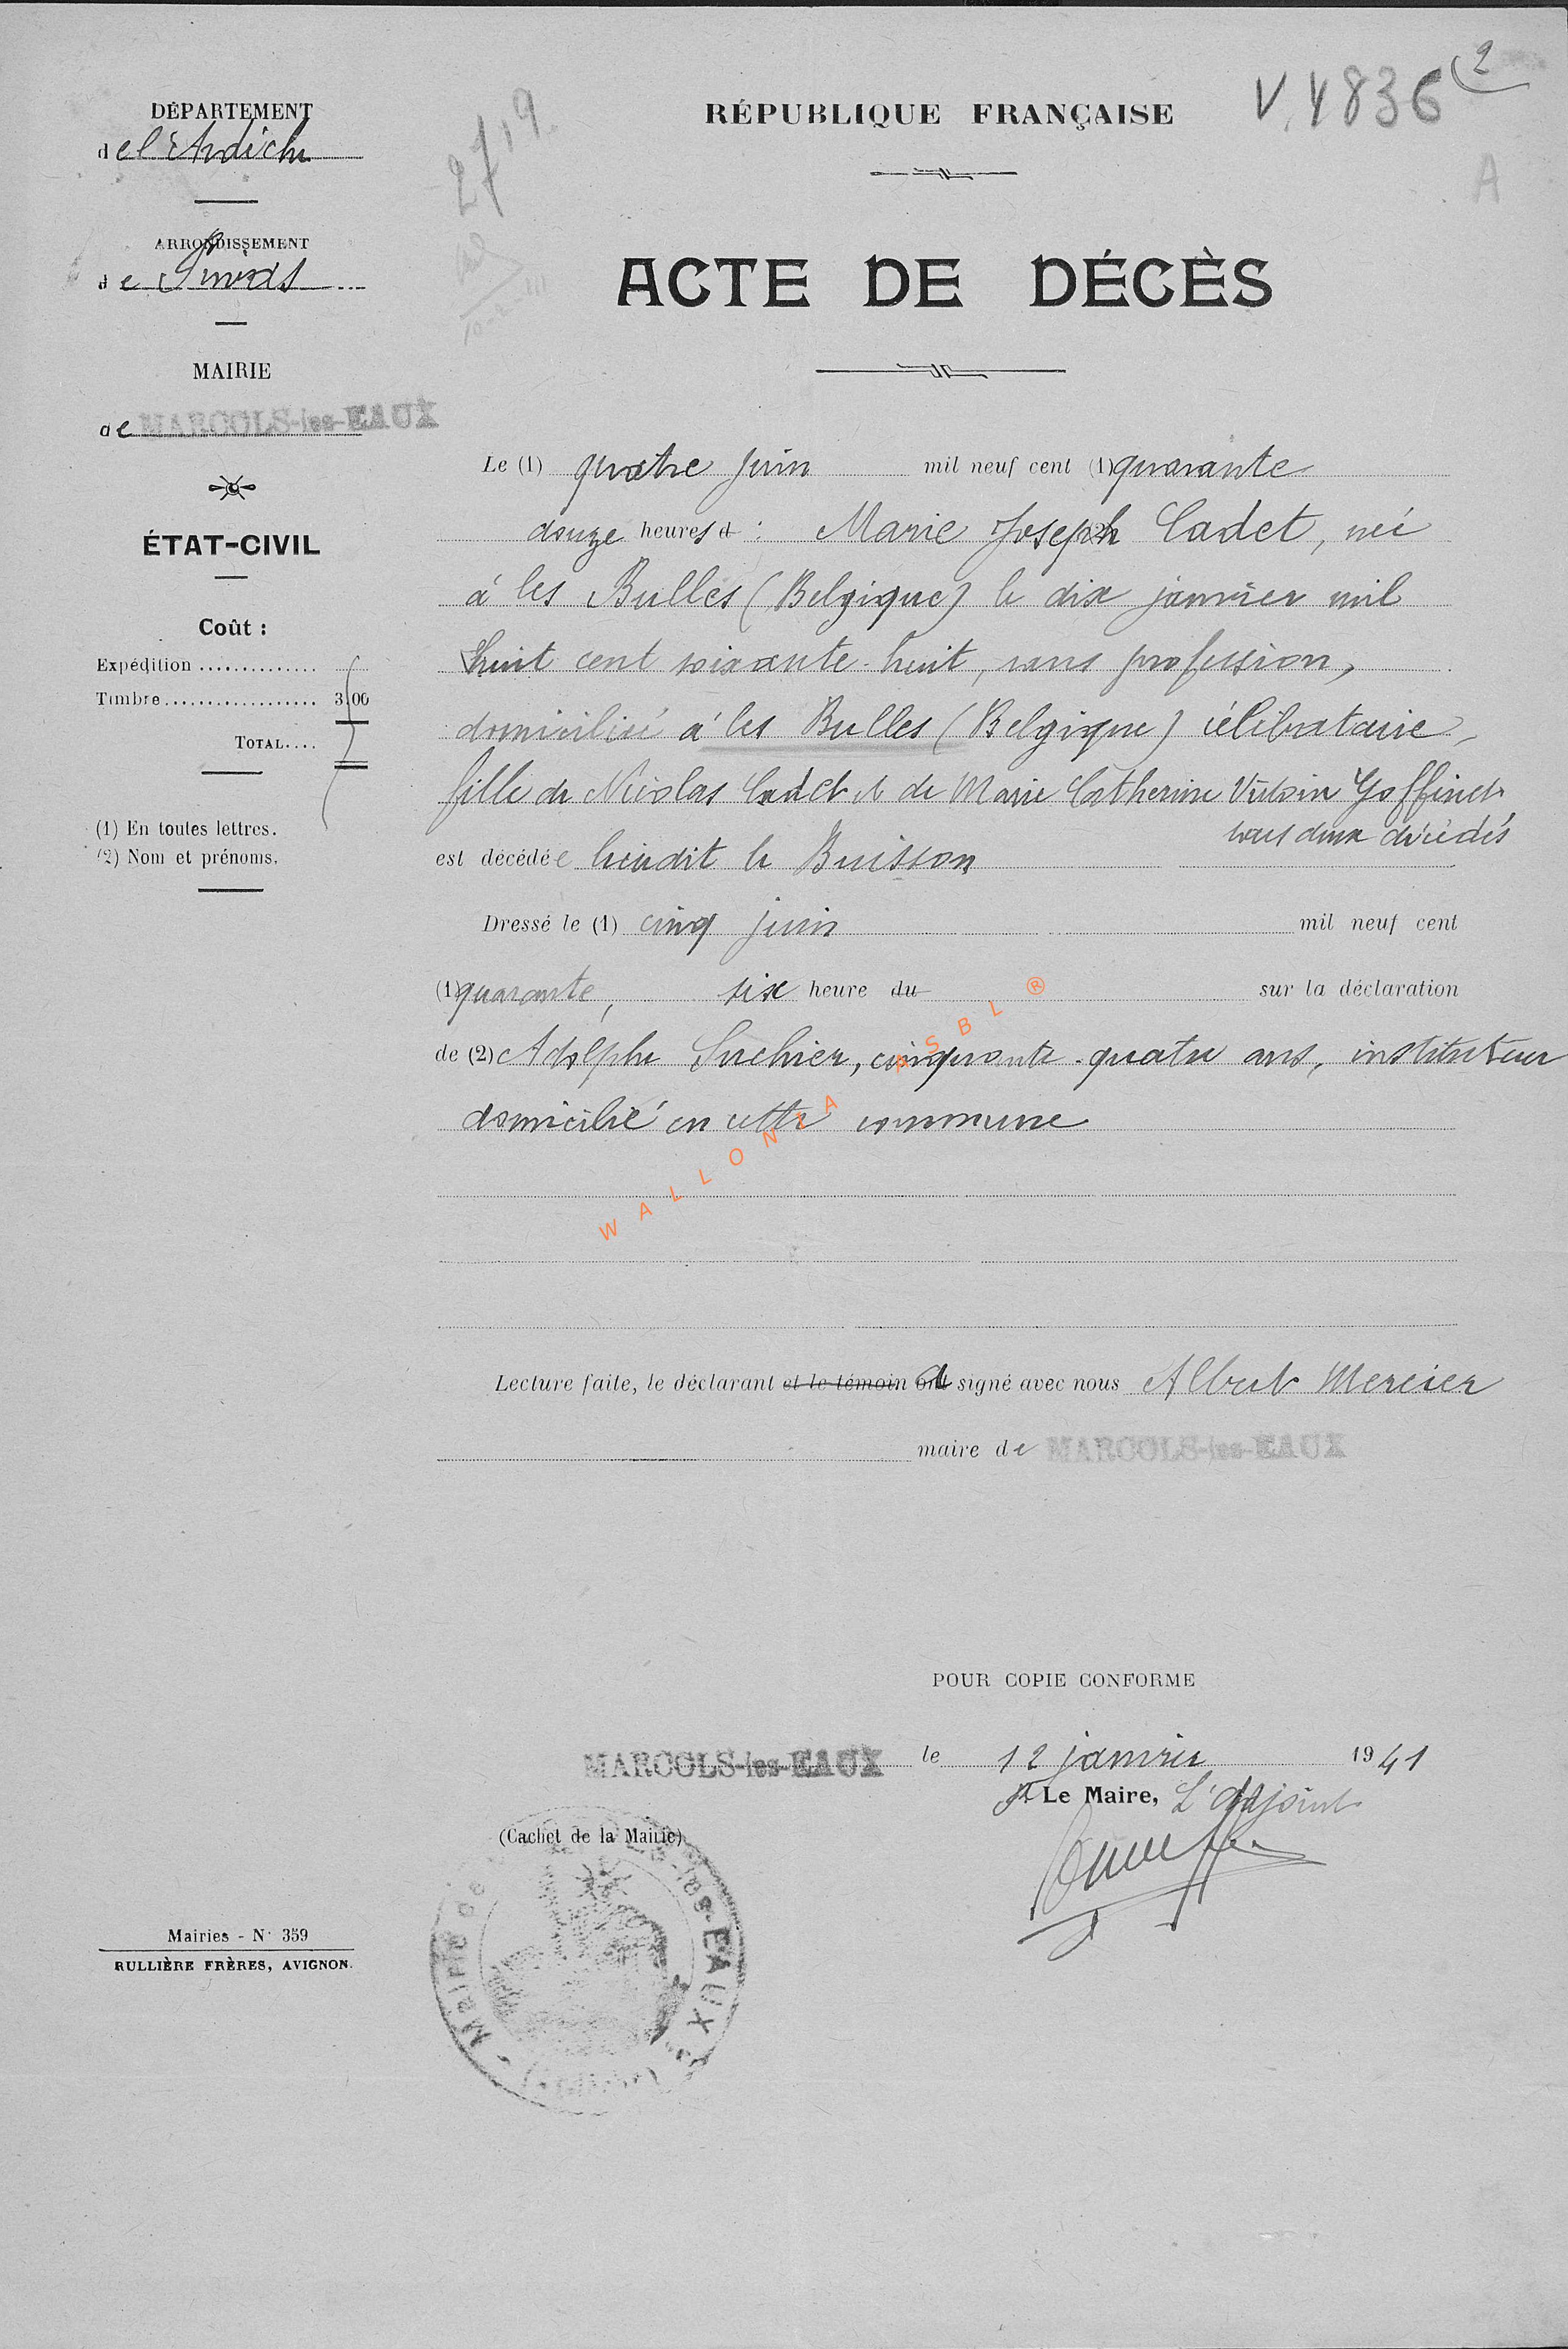 V. 4836 (2
A
27/19
DÉPARTEMENT
de l'Ardèche
ARRONDISSEMENT
de Privas
MAIRIE
de MARCOLS-les-EAUX
ÉTAT-CIVIL
Coût :
Expédition ..............
Timbre.................. 3,00
TOTAL....
(1) En toutes lettres.
(2) Nom et prénoms.
RÉPUBLIQUE FRANÇAISE
ACTE DE DÉCÈS
Le (1) quatre juin mil neuf cent (1) quarante
douze heures d : Marie Joseph Cadet, née
à les Bulles (Belgique) le dix janvier mil
huit cent soixante-huit, sans profession,
domicilié à les Bulles (Belgique) célibataire,
fille de Nicolas Cadet et de Marie Catherine Goffinet
tous deux décédés
est décédée lieudit le Buisson
Dressé le (1) cinq juin mil neuf cent
(1) quarante, six heure du sur la déclaration
de (2) Adolphe Suchier, cinquante-quatre ans, instituteur
domicilié en cette commune
WALLONIA ASBL ®
Lecture faite, le déclarant et le témoin a signé avec nous Albert Mercier
maire de MARCOLS-les-EAUX
POUR COPIE CONFORME
MARCOLS-les-EAUX le 12 janvier 1941
Pr Le Maire, L'adjoint
(Cachet de la Mairie)
Mairie de les-EAUX
Mairies - N° 359
RULLIÈRE FRÈRES, AVIGNON.